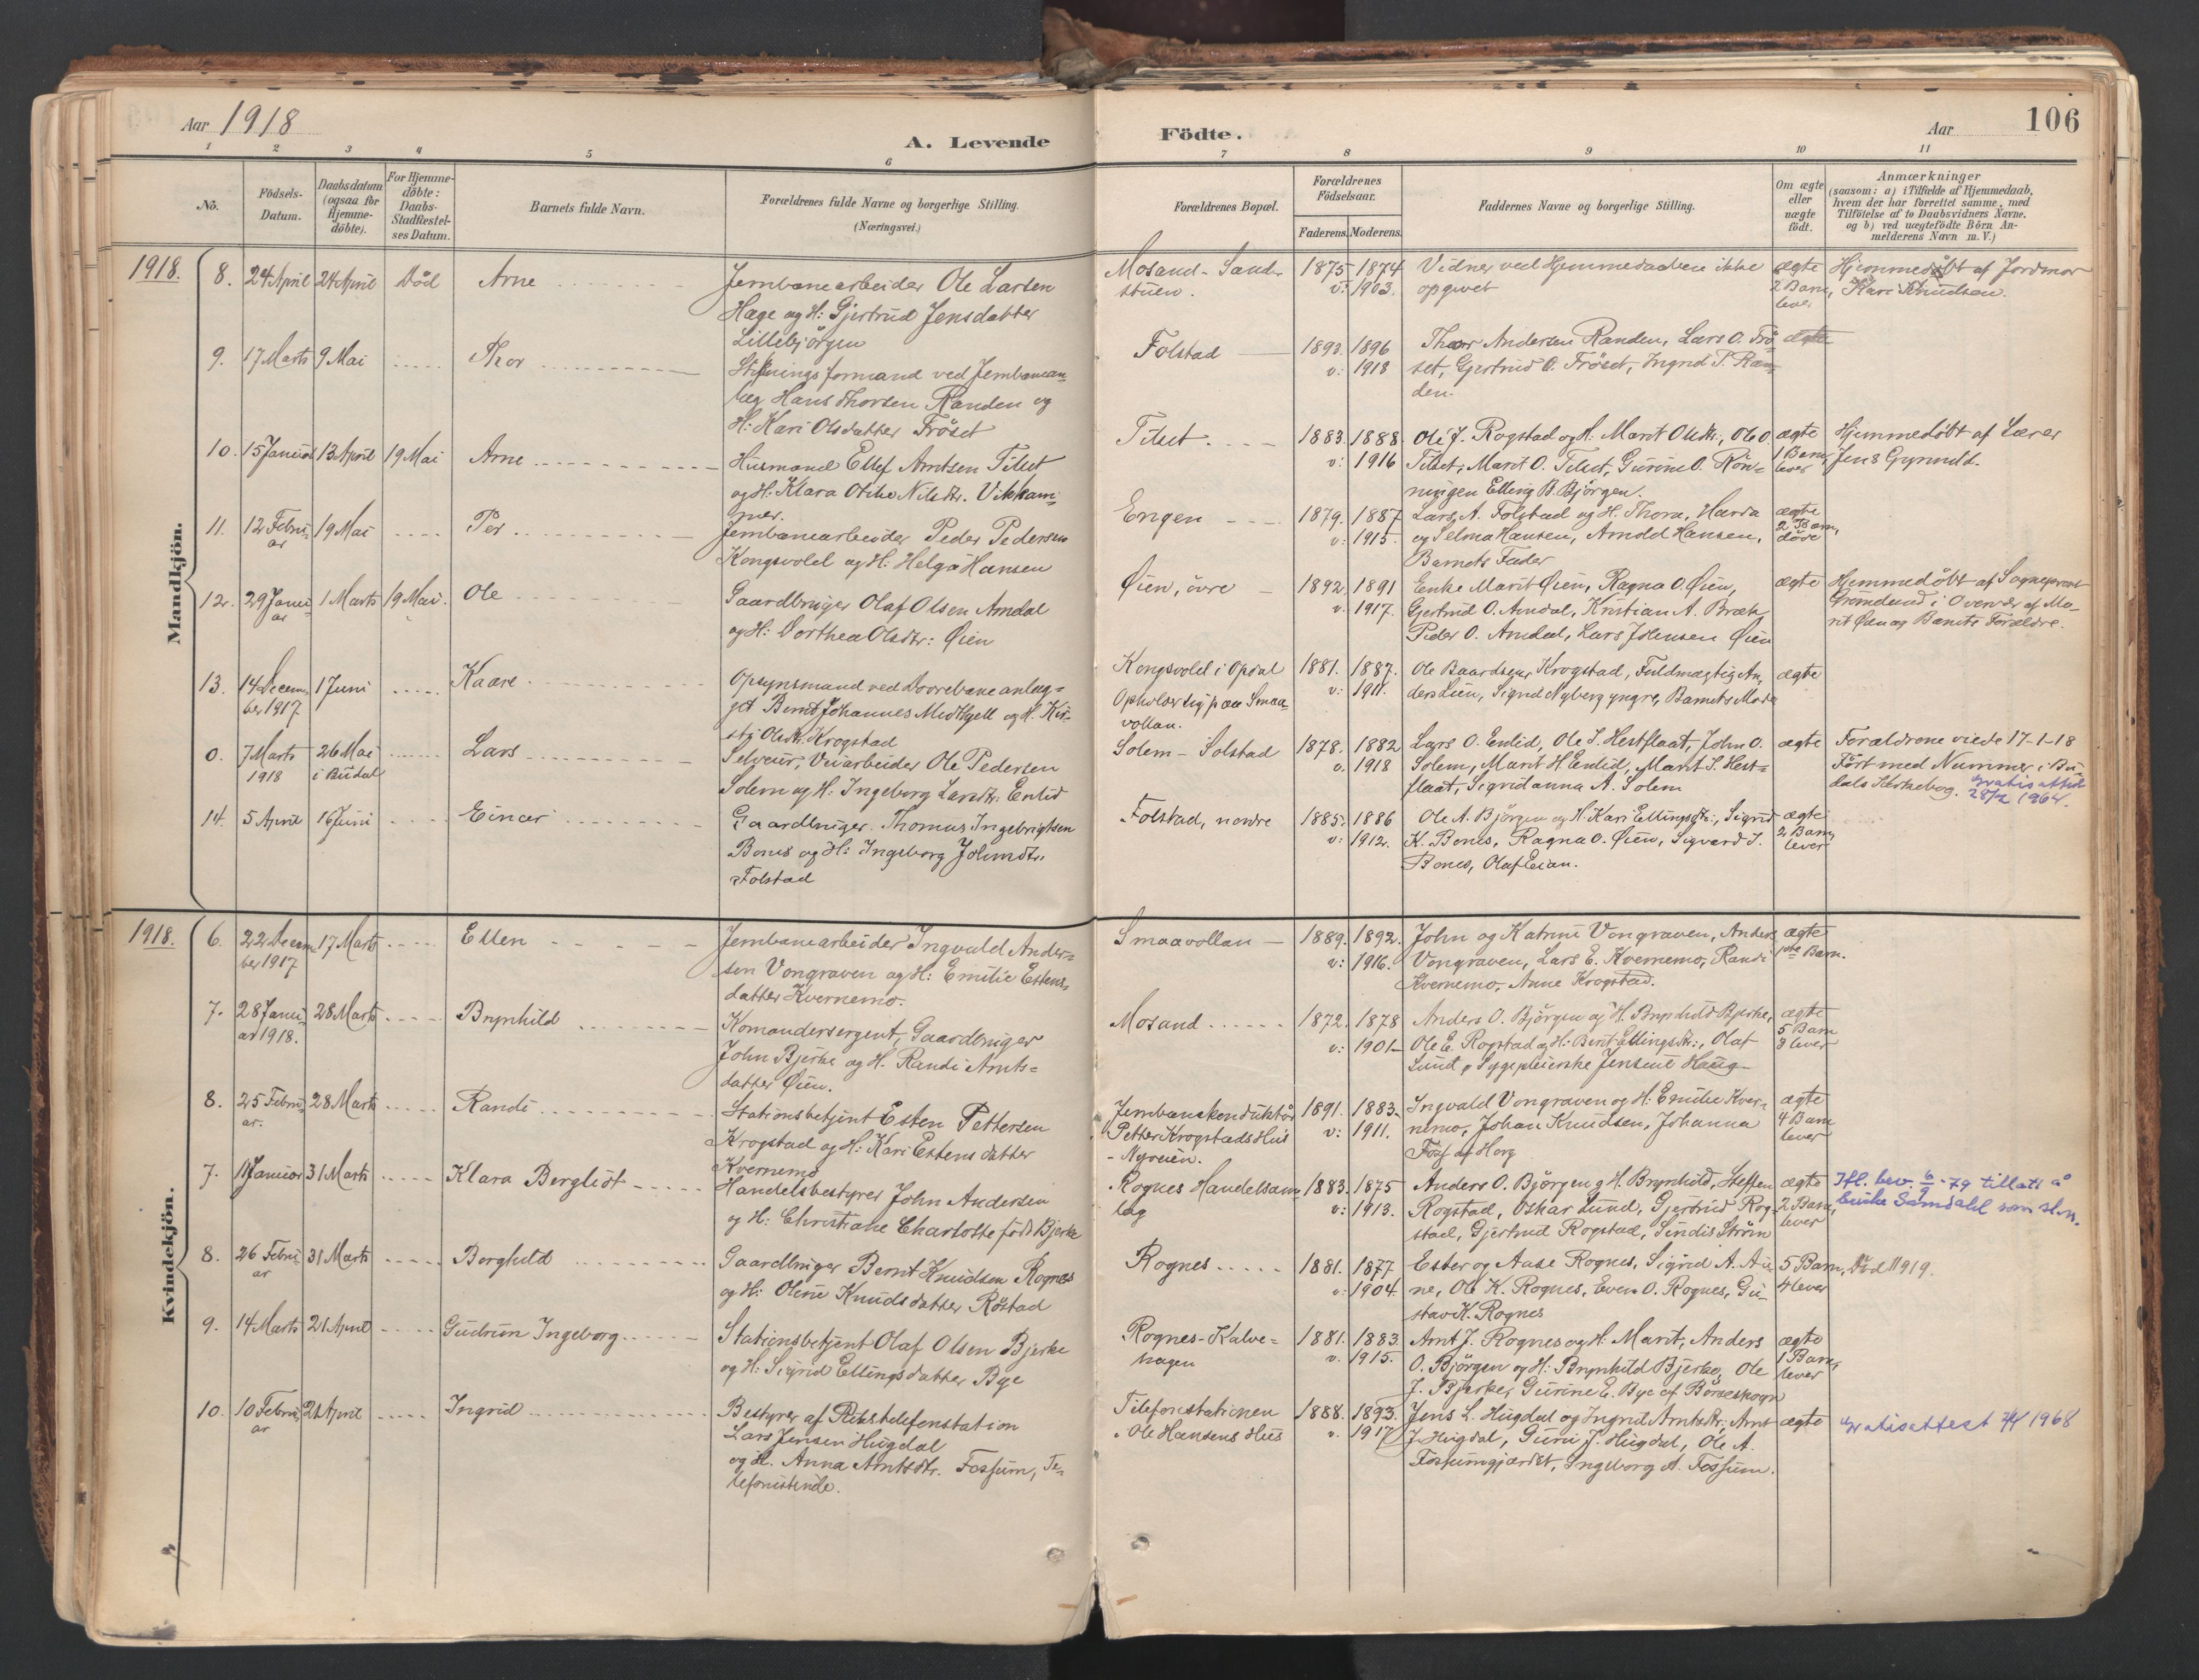 Aar 1918
A. Levende
Födte.
Aar
106
1 2 3 4 5 6 7 8 9 10 11
No.
Födsels-
Datum.
Daabsdatum
(ogsaa for
Hjemme-
döbte).
For Hjemme-
döbte:
Daabs-
Stadfæstel-
ses Datum.
Barnets fulde Navn.
Forældrenes fulde Navne og borgerlige Stilling.
(Næringsvei.)
Forældrenes Bopæl.
Forældrenes
Födselsaar.
Faderens. Moderens.
Faddernes Navne og borgerlige Stilling.
Om ægte
eller
uægte
födt.
Anmærkninger
(saasom: a) i Tilfælde af Hjemmedaab,
hvem der har forrettet samme, med
Tilföielse af to Daabsvidners Navne.
og b) ved uægtefödte Börn An-
melderens Navn m. V.)
Mandkjön.
1918. 8. 24 April 24 April Död Arne
Jernbanearbeider Ole Larsen
Hage og H: Gjertrud Jensdatter
Lillebjörgen
Mosand - Sand-
stuen.
1875 1874
v: 1903.
Vidner ved Hjemmedaaben ikke
opgivet
ægte
2 Barn,
lever
Hjemmedöbt af Jordmor
Kari Knudsen.
9. 17 Marts 9 Mai Thor
formand ved Jernbanean-
læg Hans Thorsen Randen og
H: Kari Olsdatter Fröset
Folstad
1893. 1896
v: 1918
Thor Andersen Randen, Lars O. Frö-
set, Gjertrud O. Fröset, Ingrid T. Ran-
den.
ægte
10. 15 Januar 13 April 19 Mai Arne
Husmand Ellef Arntsen Tilset
og H: Klara Otilie Nilsdtr. Vikham-
mer.
Tilset.
1883. 1888.
v: 1916
Ole J. Rogstad og H: Marit Olsdtr., Ole O.
Tilset, Marit O. Tilset, Gurine O. Rön-
ningen Elling B. Björgen.
ægte
1 Barn,
lever
Hjemmedöbt af Lærer
Jens Gynnild.
11. 12 Febru-
ar
19 Mai Per
Jernbanearbeider Peder Pedersen
Kongsvold og H: Helga Hansen
Engen
1879. 1887
v: 1915.
Lars A. Folstad og H. Thora, Harda
og Selma Hansen, Arnold Hansen,
Barnets Fader
ægte
2 Barn,
döve
12. 29 Janu-
ar
1 Marts 19 Mai. Ole
Gaardbruger Olaf Olsen Amdal
og H: Dorthea Olsdtr: Øien
Øien, övre
1892. 1891
v. 1917.
Enke Marit Øien, Ragna O. Øien,
Gjertrud O. Amdal, Kristian A. Bræk
Peder O. Amdal, Lars Johnsen Øien
ægte
Hjemmedöbt af Sogneprest
i Overvær af Ma-
rit Øien og Barnets Forældre.
13. 14 Decem-
ber 1917
1 Juni Kaare
Opsynsmand ved Dovrebaneanlæg-
get Bernt Johannes Midtkjell og H. Kir-
sti Olsdtr. Krogstad
Kongsvold i Opdal
Opholder sig paa Smaa-
vollan.
1881. 1887.
v: 1911.
Ole Baardsen Krogstad, Fuldmægtig An-
ders Lien, Sigrid Nyberg yngre, Barnets Moder
ægte
0. 7 Marts
1918
26 Mai
i Budal
Lars
Selveier, Veiarbeider Ole Pedersen
Solem og H: Ingeborg Larsdtr: Enlid
Solem - Solstad
1878. 1882
v. 1918
Lars O. Enlid, Ole S. Hestflaat, John O.
Solem, Marit H. Enlid, Marit S. Hest-
flaat, Sigridanna A. Solem
ægte
Forældrene viede 17-1-18
Fört med Nummer i Bu-
dals Kirkebog. Gratis attest
28/2 1964.
14. 5 April 16 Juni Einar
Gaardbruger Thomas Ingebrigtsen
Bones og H: Ingeborg Johnsdtr.
Folstad
Folstad, nordre
1885. 1886
v: 1912.
Ole A. Björgen og H: Kari Ellingsdtr:, Sigrid
K. Bones, Ragna O. Øien, Sigvard T.
Bones, Olaf Eian.
ægte
2 Barn,
lever
Kvindekjön.
1918. 6. 22 Decem-
ber 1917
17 Marts Ellen
Jernbanearbeider Ingvald Ander-
sen Vongraven og H: Emilie Estens-
datter Kvernemo.
Smaavollan
1889. 1892.
v: 1916.
John og Katrine Vongraven, Anders
Vongraven, Lars E. Kvernemo, Randi
Kvernemo, Anne Krogstad.
ægte
1ste Barn.
7. 28 Janu-
ar 1918.
28 Marts Brynhild
Komandersergent, Gaardbruger
John Bjerke og H. Randi Arnts-
datter Øien.
Mosand
1872. 1878
v: 1901-
Anders O. Björgen og H. Brynhild Bjerke,
Ole E. Rogstad og H: Berit Ellingsdtr:, Olaf
Lund, Sygepleierske Jensine Haug-
ægte
5 Barn
3 lever
8. 25 Febru-
ar.
28 Marts Randi
Stationsbetjent Esten Pettersen
Krogstad og H: Kari Estensdatter
Kvernemo
Jernbanekonduktör
Petter Krogstads Hus
- Nyveien.
1891. 1883-
v: 1911.
Ingvald Vongraven og H: Emilie Kver-
nemo, Johan Knudsen, Johanna
af Horg
ægte
4 Barn
lever
7. 11 Januar 31 Marts Klara Bergliot
Handelsbestyrer John Andersen
og H: Christiane Charlotte födt Bjerke
Rognes Handelssam-
lag
1883. 1875
v: 1913.
Anders O. Björgen og H. Brynhild, Steffen
Rogstad, Oskar Lund, Gjertrud Rog-
stad, Gjertrud Rogstad, Sindis Ström
ægte
2 Barn,
lever
Ifl. bev. 6/9-79 tillatt å
bruke Samdahl som sl.n.
8. 26 Febru-
ar
31 Marts Borghild
Gaardbruger Bernt Knudsen Rognes
og H: Oline Knudsdatter Röstad
Rognes
1881. 1877
v: 1904.
Ester og Aase Rognes, Sigrid A. Au-
ne, Ole K. Rognes, Even O. Rognes, Gu-
stav K. Rognes
5 Barn,
4 lever
Död 1919.
9. 14 Marts 21 April Gudrun Ingeborg
Stationsbetjent Olaf Olsen Bjerke
og H: Sigrid Ellingsdatter Bye
Rognes-Kalve-
hagen
1881. 1883.
v. 1915.
Arnt J. Rognes og H: Marit, Anders
O. Björgen og H: Brynhild Bjerke, Ole
J. Bjerke, Gurine E. Bye af Börseskogn
ægte
1 Barn,
lever
10. 10 Febru-
ar
21 April Ingrid
Bestyrer af Rikstelefonstation
Lars Jensen Hugdal
og H. Anna Arntsdtr. Fossum, Te-
lefonistinde.
Telefonstationen
Ole Hansens Hus
1888. 1893.
v. 1917
Jens L. Hugdal og Ingrid Arntsdtr., Arnt
J. Hugdal, Guru J. Hugdal, Ole A.
Fossumgjærdet, Ingeborg A. Fossum.
ægte
Gratisattest 1968